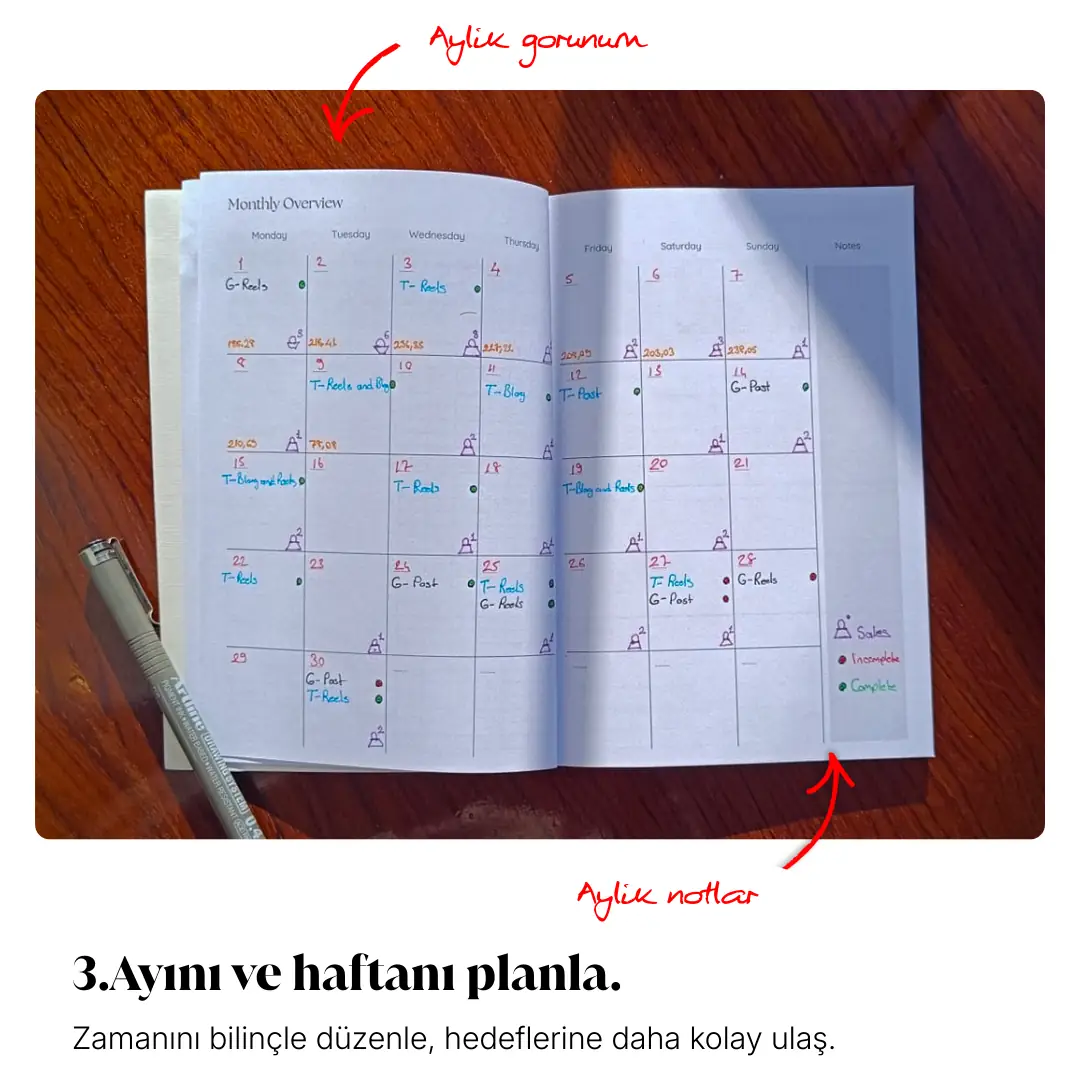 Aylik gorunum
Monthly Overview
Monday Tuesday Wednesday Thursday Friday Saturday Sunday Notes
1 2 3 4 5 6 7
G-Reels T- Reels
3 6 8 2 3 1
216,41 236,35 203,03 238,05
8 9 10 11 12 13 14
T-Reels and Blog T-Blog T-Post G-Post
1 2 1 1 2
210,63 78,08
15 16 17 18 19 20 21
T-Blog and Reels T-Reels T-Blog and Reels
2 1 1 1 2
22 23 24 25 26 27 28
T-Reels G-Post T-Reels T-Reels G-Reels
G-Reels G-Post
1 1 2 1
29 30
G-Post
T-Reels
2
Sales
Incomplete
Complete
Artline DRAWING SYSTEM 0.4
PIGMENT INK • WATER BASED • WATER RESISTANT
Aylik notlar
3.Ayını ve haftanı planla.
Zamanını bilinçle düzenle, hedeflerine daha kolay ulaş.